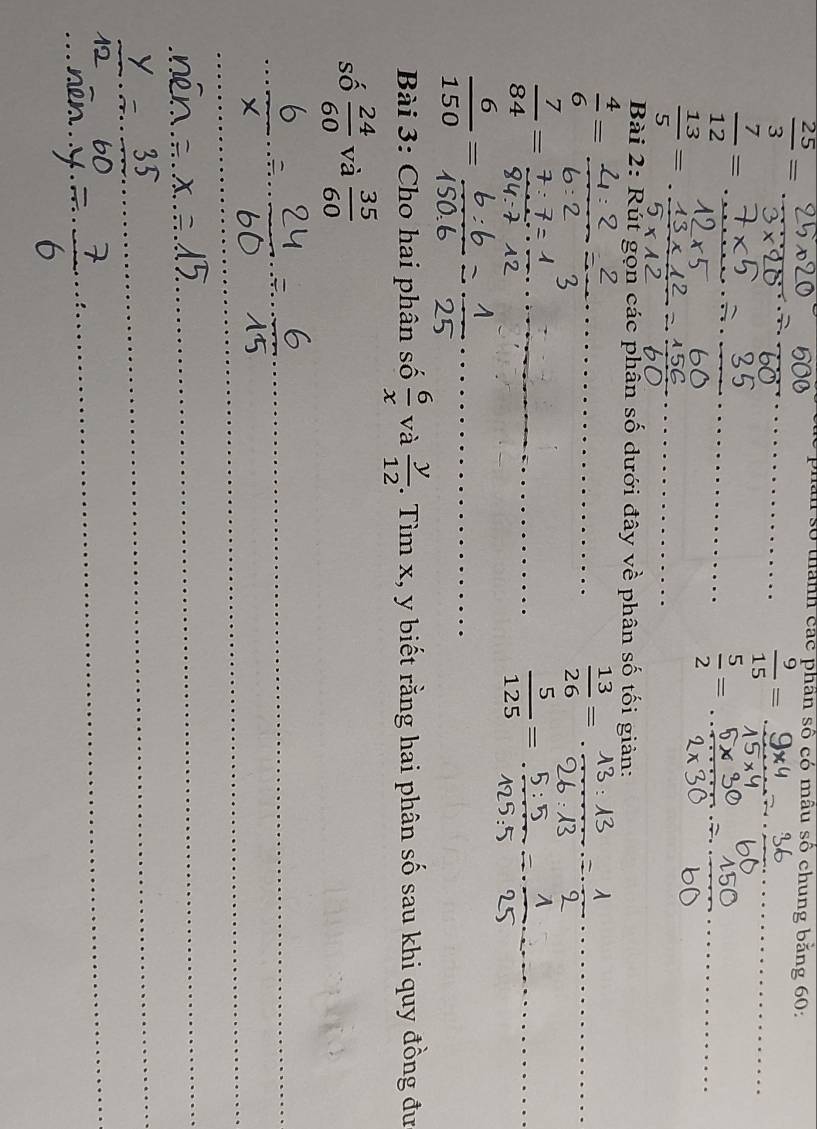 phân số thành các phân số có mẫu số chung bằng 60:
25/3 = 25×20/3×20 = 500/60    9/15 = 9×4/15×4 = 36/60
7/12 = 7×5/12×5 = 35/60    5/2 = 5×30/2×30 = 150/60
13/5 = 13×12/5×12 = 156/60
Bài 2: Rút gọn các phân số dưới đây về phân số tối giản:
4/6 = 4:2/6:2 = 2/3    13/26 = 13:13/26:13 = 1/2
7/84 = 7:7/84:7 = 1/12    5/125 = 5:5/125:5 = 1/25
6/150 = 6:6/150:6 = 1/25
Bài 3: Cho hai phân số 6/x và y/12. Tìm x, y biết rằng hai phân số sau khi quy đồng đư
số 24/60 và 35/60
6/x = 24/60 = 6/15
nên = x = 15
y/12 = 35/60
nên y = 7/6